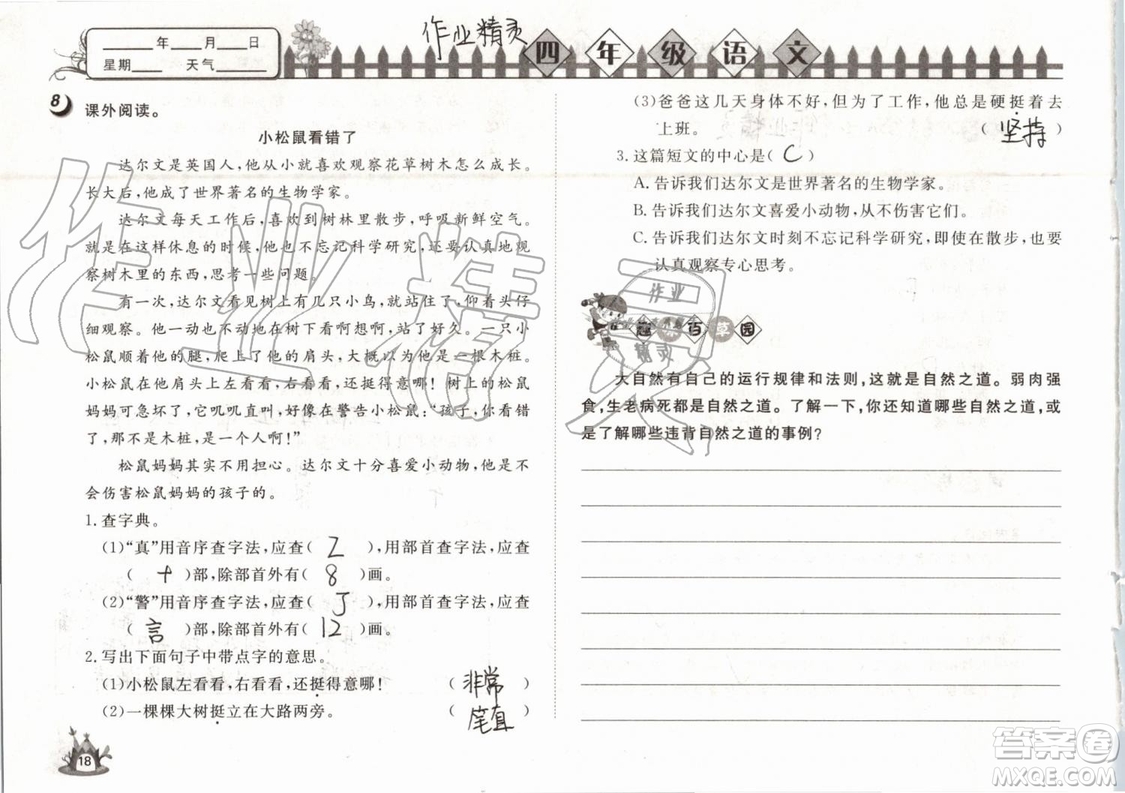 ____年____月____日
星期____ 天气____
作业精灵
四年级语文
8 课外阅读。
小松鼠看错了
达尔文是英国人,他从小就喜欢观察花草树木怎么成长。
长大后,他成了世界著名的生物学家。
达尔文每天工作后,喜欢到树林里散步,呼吸新鲜空气。
就是在这样休息的时候,他也不忘记科学研究,还要认真地观
察树木里的东西,思考一些问题。
有一次,达尔文看见树上有几只小鸟,就抬着头仔
细观察。为了不打扰它们,他一动不动,站了好久。一只小
松鼠看见他的腿,爬上了他的肩头,大概以为他是一根木桩。
小松鼠左看看,右看看,还挺得意哪!树上的松鼠
妈妈可急坏了,它叽叽直叫,好像在警告小松鼠:“孩子,你看错
了,那不是木桩,是一个人啊!”
松鼠妈妈其实不用担心。达尔文十分喜爱小动物,他是不
会伤害松鼠妈妈的孩子的。
1.查字典。
(1)“真”用音序查字法,应查( Z ),用部首查字法,应查
( 十 )部,除部首外有( 8 )画。
(2)“警”用音序查字法,应查( J ),用部首查字法,应查
( 言 )部,除部首外有( 12 )画。
2.写出下面句子中带点字的意思。
(1)小松鼠左看看,右看看,还挺得意哪! ( 非常 )
(2)一棵棵大树挺立在大路两旁。 ( 笔直 )
18
(3)爸爸这几天身体不好,但为了工作,他总是硬挺着去
上班。 ( 坚持 )
3.这篇短文的中心是( C )
A.告诉我们达尔文是世界著名的生物学家。
B.告诉我们达尔文喜爱小动物,从不伤害它们。
C.告诉我们达尔文时刻不忘记科学研究,即使在散步,也要
认真观察专心思考。
作业
精灵
百草园
大自然有自己的运行规律和法则,这就是自然之道。弱肉强
食,生老病死都是自然之道。了解一下,你还知道哪些自然之道,或
是了解哪些违背自然之道的事例?
作业精灵
答案圈
MXQE.COM